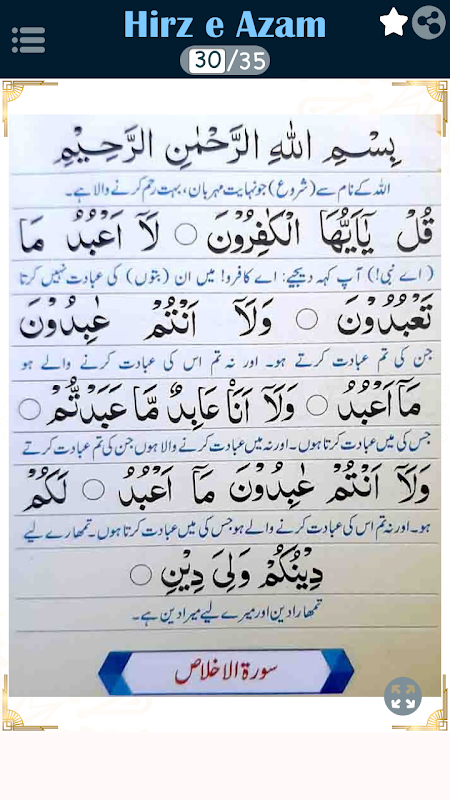 Hirz e Azam
30/35
بِسْمِ اللهِ الرَّحْمٰنِ الرَّحِيْمِ
اللہ کے نام سے (شروع) جو نہایت مہربان، بہت رحم کرنے والا ہے۔
قُلْ يٰٓاَيُّهَا الْكٰفِرُوْنَ ۝ لَآ اَعْبُدُ مَا
(اے نبی!) آپ کہہ دیجیے: اے کافرو! میں ان (بتوں) کی عبادت نہیں کرتا
تَعْبُدُوْنَ ۝ وَلَآ اَنْتُمْ عٰبِدُوْنَ
جن کی تم عبادت کرتے ہو۔ اور نہ تم اس کی عبادت کرنے والے ہو
مَآ اَعْبُدُ ۝ وَلَآ اَنَا۠ عَابِدٌ مَّا عَبَدْتُّمْ ۝
جس کی میں عبادت کرتا ہوں۔ اور نہ میں عبادت کرنے والا ہوں جن کی تم عبادت کرتے
وَلَآ اَنْتُمْ عٰبِدُوْنَ مَآ اَعْبُدُ ۝ لَكُمْ
ہو۔ اور نہ تم اس کی عبادت کرنے والے ہو جس کی میں عبادت کرتا ہوں۔ تمھارے لیے
دِيْنُكُمْ وَلِيَ دِيْنِ ۝
تمھارا دین اور میرے لیے میرا دین ہے۔
سورة الاخلاص